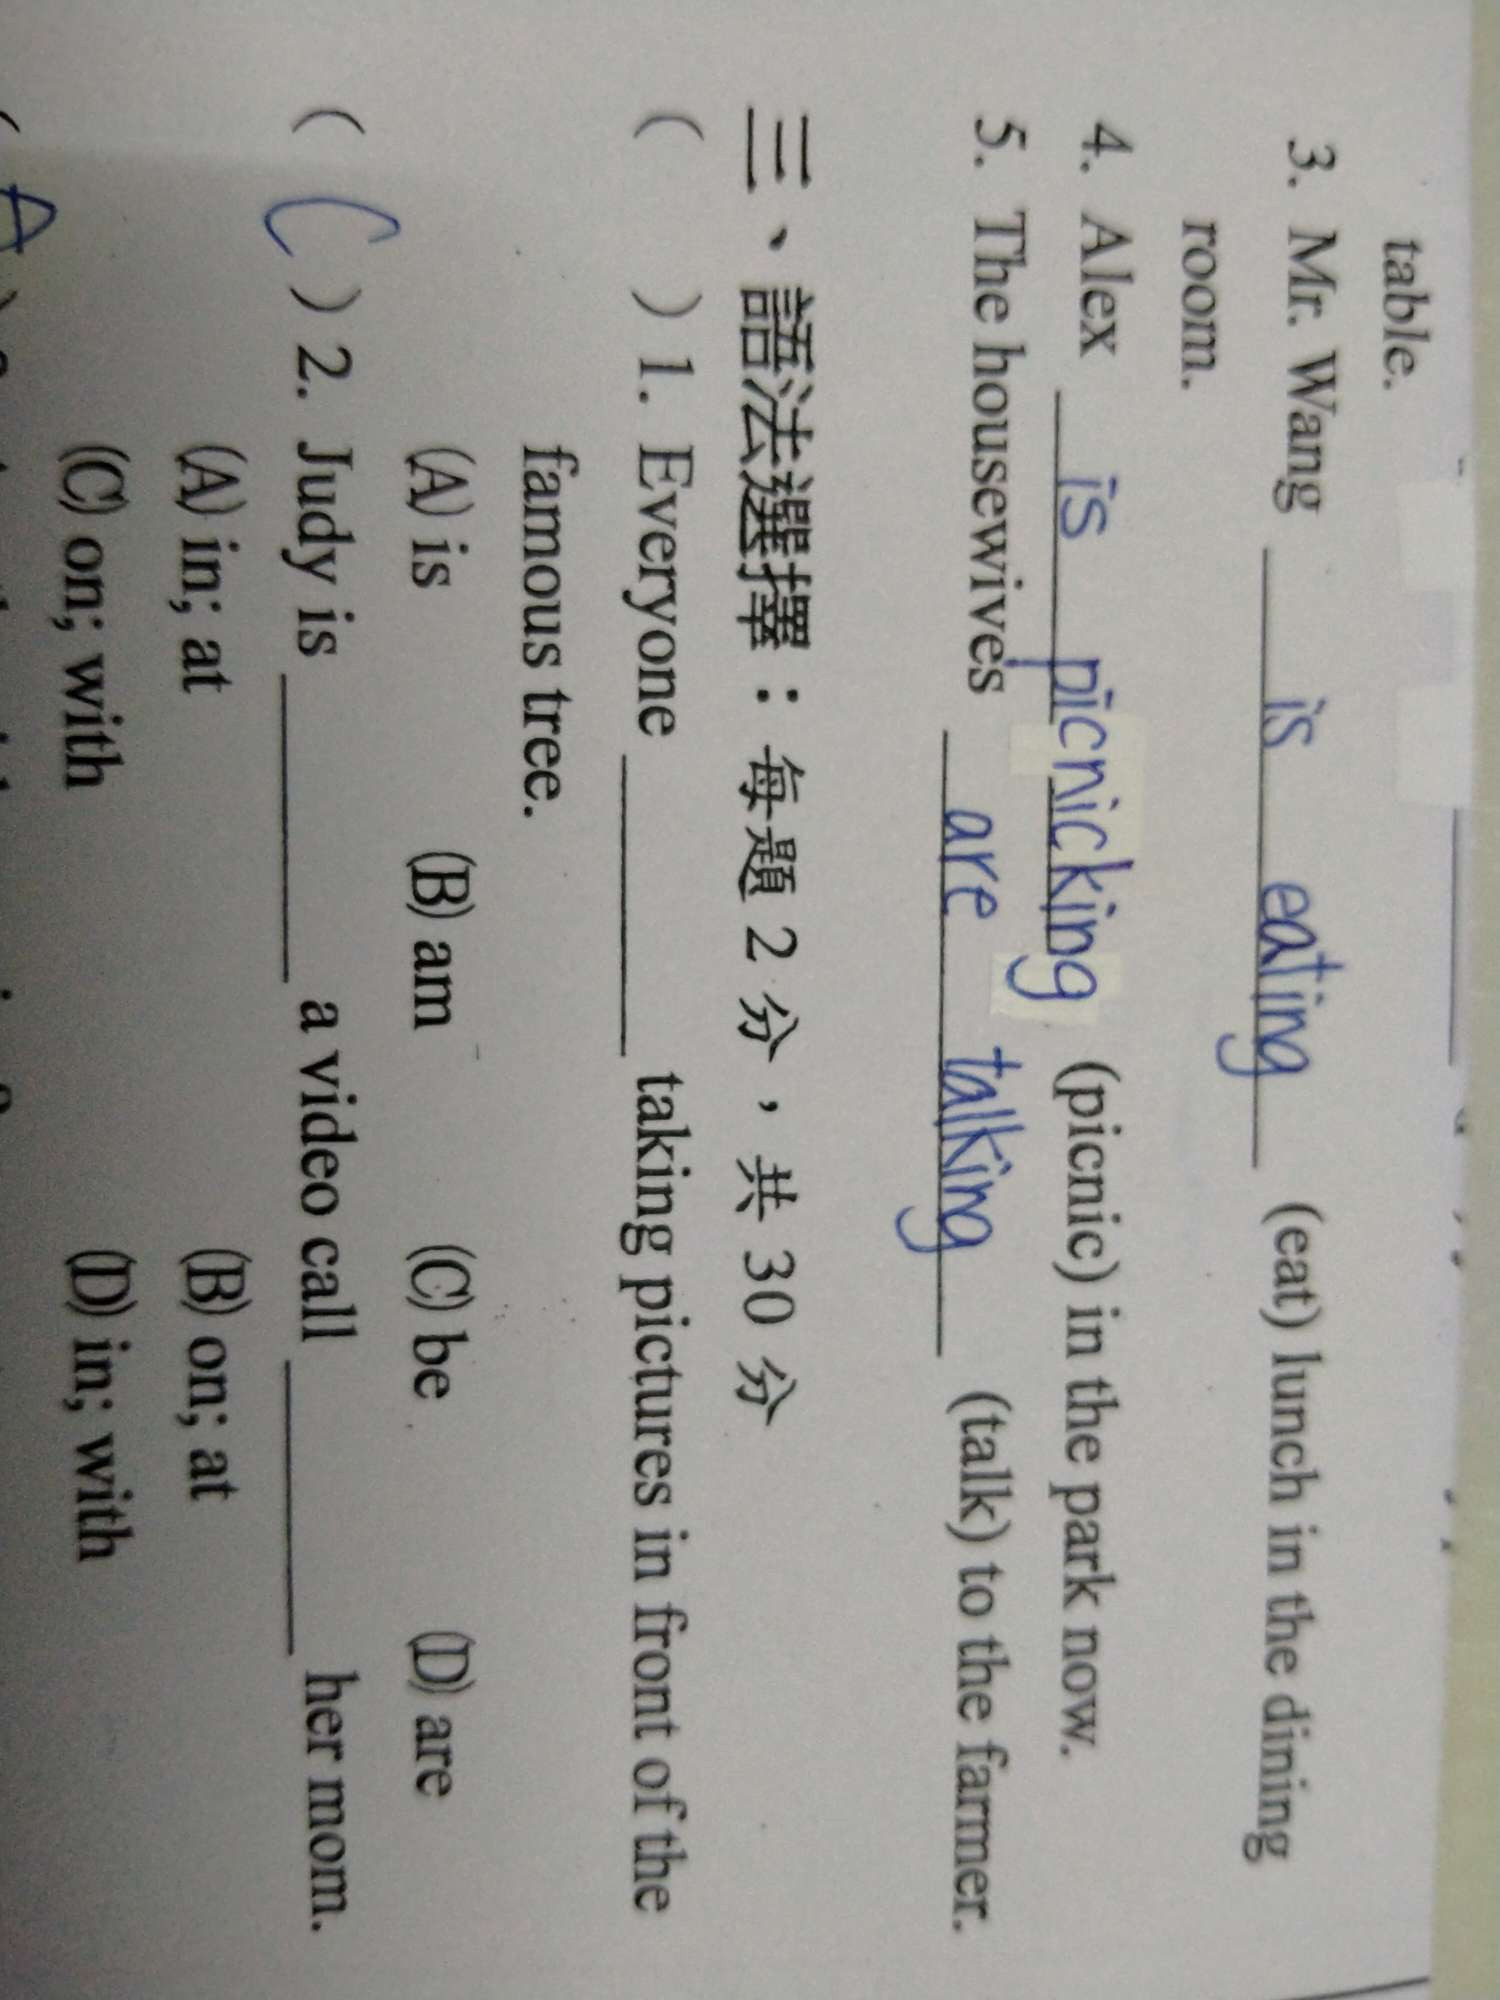 table.
3. Mr. Wang is eating (eat) lunch in the dining
room.
4. Alex is picnicking (picnic) in the park now.
5. The housewives are talking (talk) to the farmer.
三、語法選擇：每題 2 分，共 30 分
( ) 1. Everyone ______ taking pictures in front of the
famous tree.
(A) is (B) am (C) be (D) are
( C ) 2. Judy is ______ a video call ______ her mom.
(A) in; at (B) on; at
(C) on; with (D) in; with
( A )